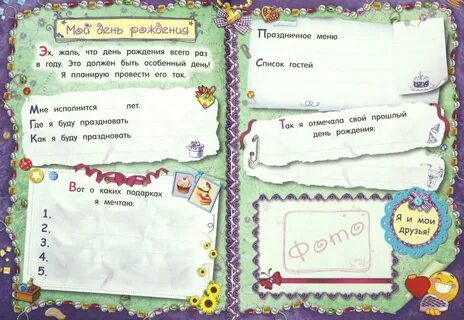 Мой день рождения
Эх, жаль, что день рождения всего раз
в году. Это должен быть особенный день!
Я планирую провести его так.
Мне исполнится лет.
Где я буду праздновать
Как я буду праздновать
Вот о каких подарках
я мечтаю:
1.
2.
3.
4.
5.
Праздничное меню
Список гостей
Так я отмечала свой прошлый
день рождения:
Фото
Я и мои
друзья!